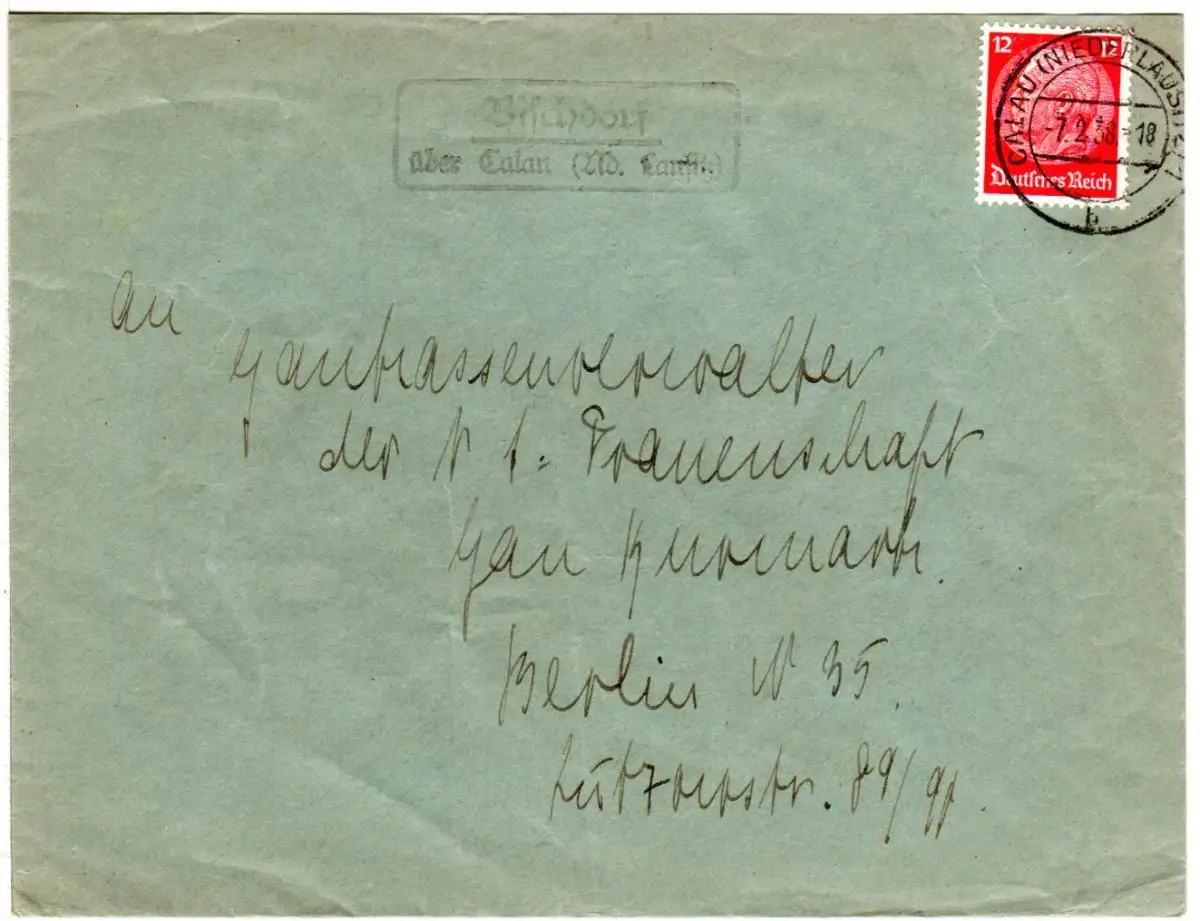 Bischdorf
über Calau (Nd. Lausitz)
12 12
Deutsches Reich
CALAU (NIEDERLAUSITZ)
-7.2.38-18
b
An
Gaukassenverwalter
der N S = Frauenschaft
Gau Kurmark.
Berlin W 35.
Lützowstr. 89/90.